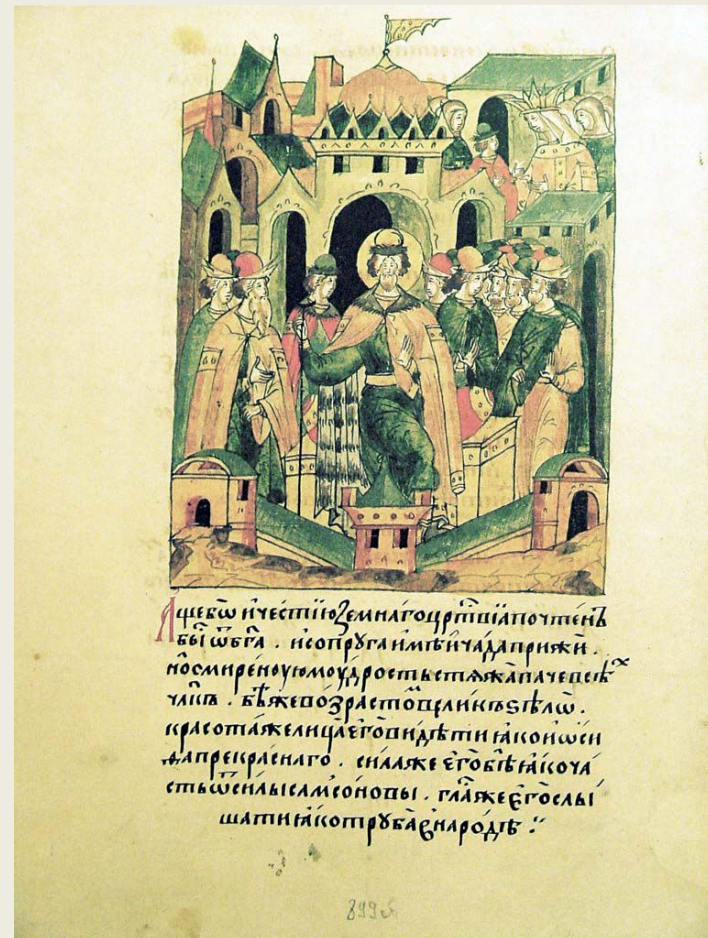 Аще бѡ и честїю земнаго црⷭ҇твїѧ почтенъ
бы́ ѿ бг҃а . и сопруга имѣ и чада прижи .
но смиреную моудрость стѧжа паче всѣⷯ
чл҃къ . бѣ же возрастоⷨ великъ ѕѣлѡ .
красота же лица его видѣти ꙗко иѡси
фа прекраснаго . сила же его бѣ ꙗко ча
сть ѿ силы самсоновы . глⷭ҇а же его слы
шати ꙗко труба в народѣ ⁘
899 об